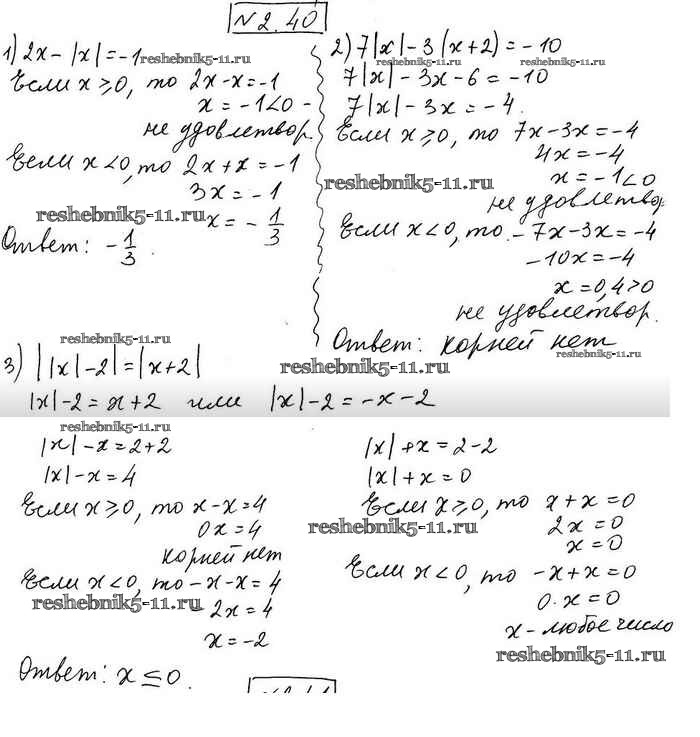 № 2.40
1) 2x - |x| = -1
reshebnik5-11.ru
Если x ≥ 0, то 2x - x = -1
x = -1 < 0 -
не удовлетвор.
Если x < 0, то 2x + x = -1
3x = -1
reshebnik5-11.ru
x = - 1/3
Ответ: - 1/3.
2) 7|x| - 3(x+2) = -10
reshebnik5-11.ru reshebnik5-11.ru
7|x| - 3x - 6 = -10
7|x| - 3x = -4.
Если x ≥ 0, то 7x - 3x = -4
4x = -4
reshebnik5-11.ru
x = -1 < 0
не удовлетвор.
Если x < 0, то -7x - 3x = -4
-10x = -4
x = 0,4 > 0
не удовлетвор.
Ответ: корней нет
reshebnik5-11.ru
reshebnik5-11.ru
reshebnik5-11.ru
3) ||x| - 2| = |x+2|
|x| - 2 = x + 2 или |x| - 2 = -x - 2
reshebnik5-11.ru
|x| - x = 2 + 2
|x| - x = 4
Если x ≥ 0, то x - x = 4
0x = 4
корней нет
Если x < 0, то -x - x = 4
reshebnik5-11.ru
-2x = 4
x = -2
|x| + x = 2 - 2
|x| + x = 0
Если x ≥ 0, то x + x = 0
reshebnik5-11.ru
2x = 0
x = 0
Если x < 0, то -x + x = 0
0·x = 0
x - любое число
reshebnik5-11.ru
Ответ: x ≤ 0.